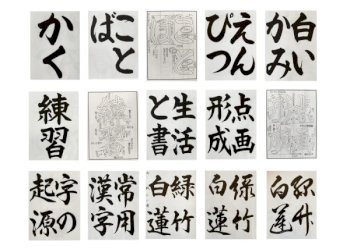 かく
こと
ば
えん
ぴつ
白い
かみ
練習
生活
と書
点画
形成
字の
起源
常用
漢字
緑竹
白蓮
緑竹
白蓮
緑竹
白蓮